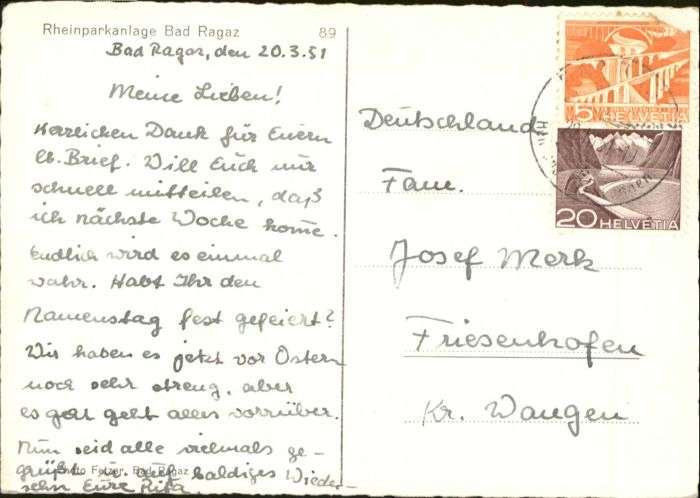 Rheinparkanlage Bad Ragaz 89
Bad Ragaz, den 20.3.51
Meine Lieben!
Herzlichen Dank für Euern
lb. Brief. Will Euch nur
schnell mitteilen, daß
ich nächste Woche kome.
Endlich wird es einmal
wahr. Habt Ihr den
Namenstag fest gefeiert?
Wir haben es jetzt vor Ostern
noch sehr streng, aber
es geht alles vorrüber.
Nun seid alle vielmals ge-
grüßt u. auf baldiges Wieder-
sehn Eure Rita.
Photo Fetzer, Bad Ragaz
Deutschland
Fam.
Josef Merk
Friesenhofen
Kr. Wangen
5 HELVETIA
20 HELVETIA